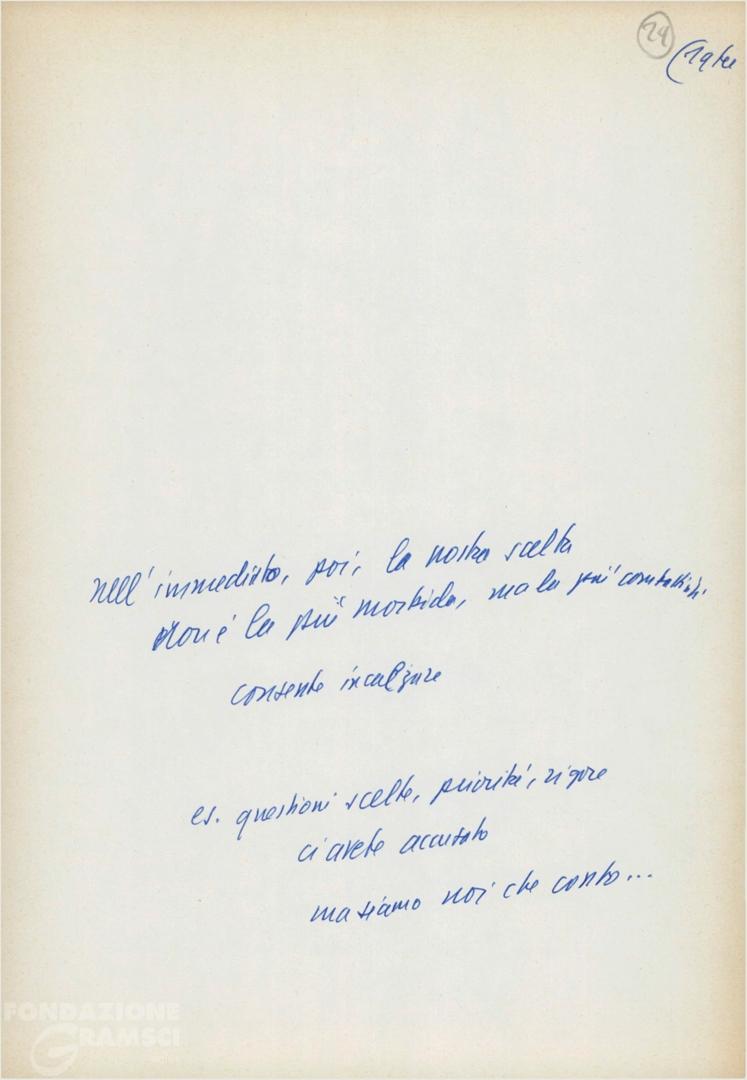 24
nell'immediato, poi, la nostra scelta
non è la più morbida, ma la più combattiva.
consente incalzare
es. questioni scelte, priorità, rigore
ci avete accusato
ma siamo noi che conto...
FONDAZIONE
GRAMSCI